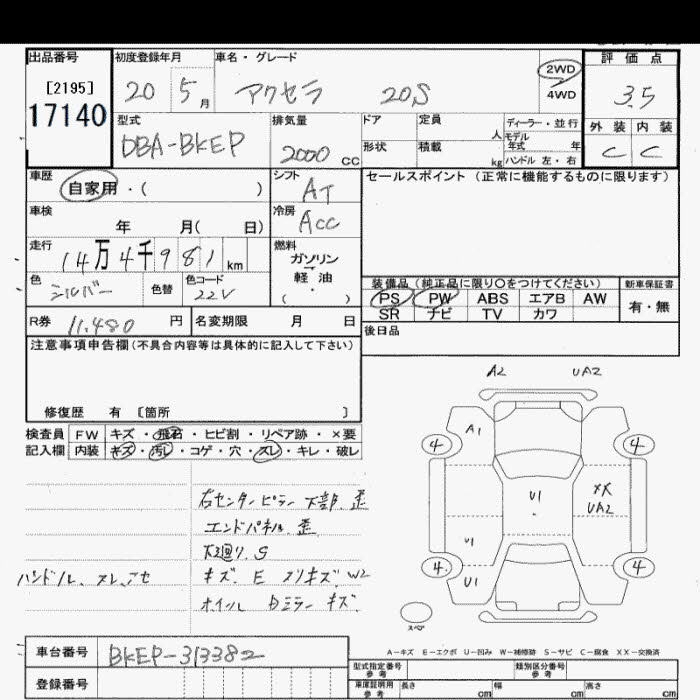 出品番号 初度登録年月 車名・グレード 2WD 評価点
[2195] 20 5月 アクセラ 20S 4WD 3.5
17140
型式 排気量 ドア 定員 人 ディーラー・並行 外装 内装
DBA-BKEP 2000 cc 形状 積載 kg モデル年式 年 C C
ハンドル 左・右
車歴 シフト セールスポイント(正常に機能するものに限ります)
自家用・( ) AT
車検 冷房
年 月( 日) Acc
走行 燃料
14万4千981km ガソリン
軽油
色 色替 色コード ( )
シルバー 22V
装備品(純正品に限り○をつけてください) 新車保証書
PS PW ABS エアB AW 有・無
SR ナビ TV カワ
R券 11,480 円 名変期限 月 日
後日品
注意事項申告欄(不具合内容等は具体的に記入して下さい)
修復歴 有 [箇所 ]
検査員 FW キズ・飛石・ヒビ割・リペア跡・×要
記入欄 内装 キズ・汚レ・コゲ・穴・スレ・キレ・破レ
A2 UA2
A1
4 4
U1 XX
UA2
U1
4 4
U1
スペア
右センターピラー下部 歪
エンドパネル 歪
下廻り S
ハンドル、スレ、
キズ E スリキズ W2
ホイル Dミラー キズ
A-キズ E-エクボ U-凹み W-補修跡 S-サビ C-腐食 XX-交換済
車台番号 BKEP-313382
登録番号
型式指定番号 参考 類別区分番号 参考
車庫証明用 参考 長さ cm 幅 cm 高さ cm